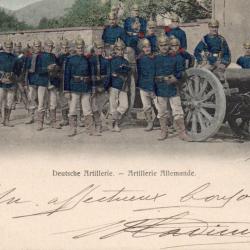 Deutsche Artillerie. — Artillerie Allemande.
Un affectueux bonjour